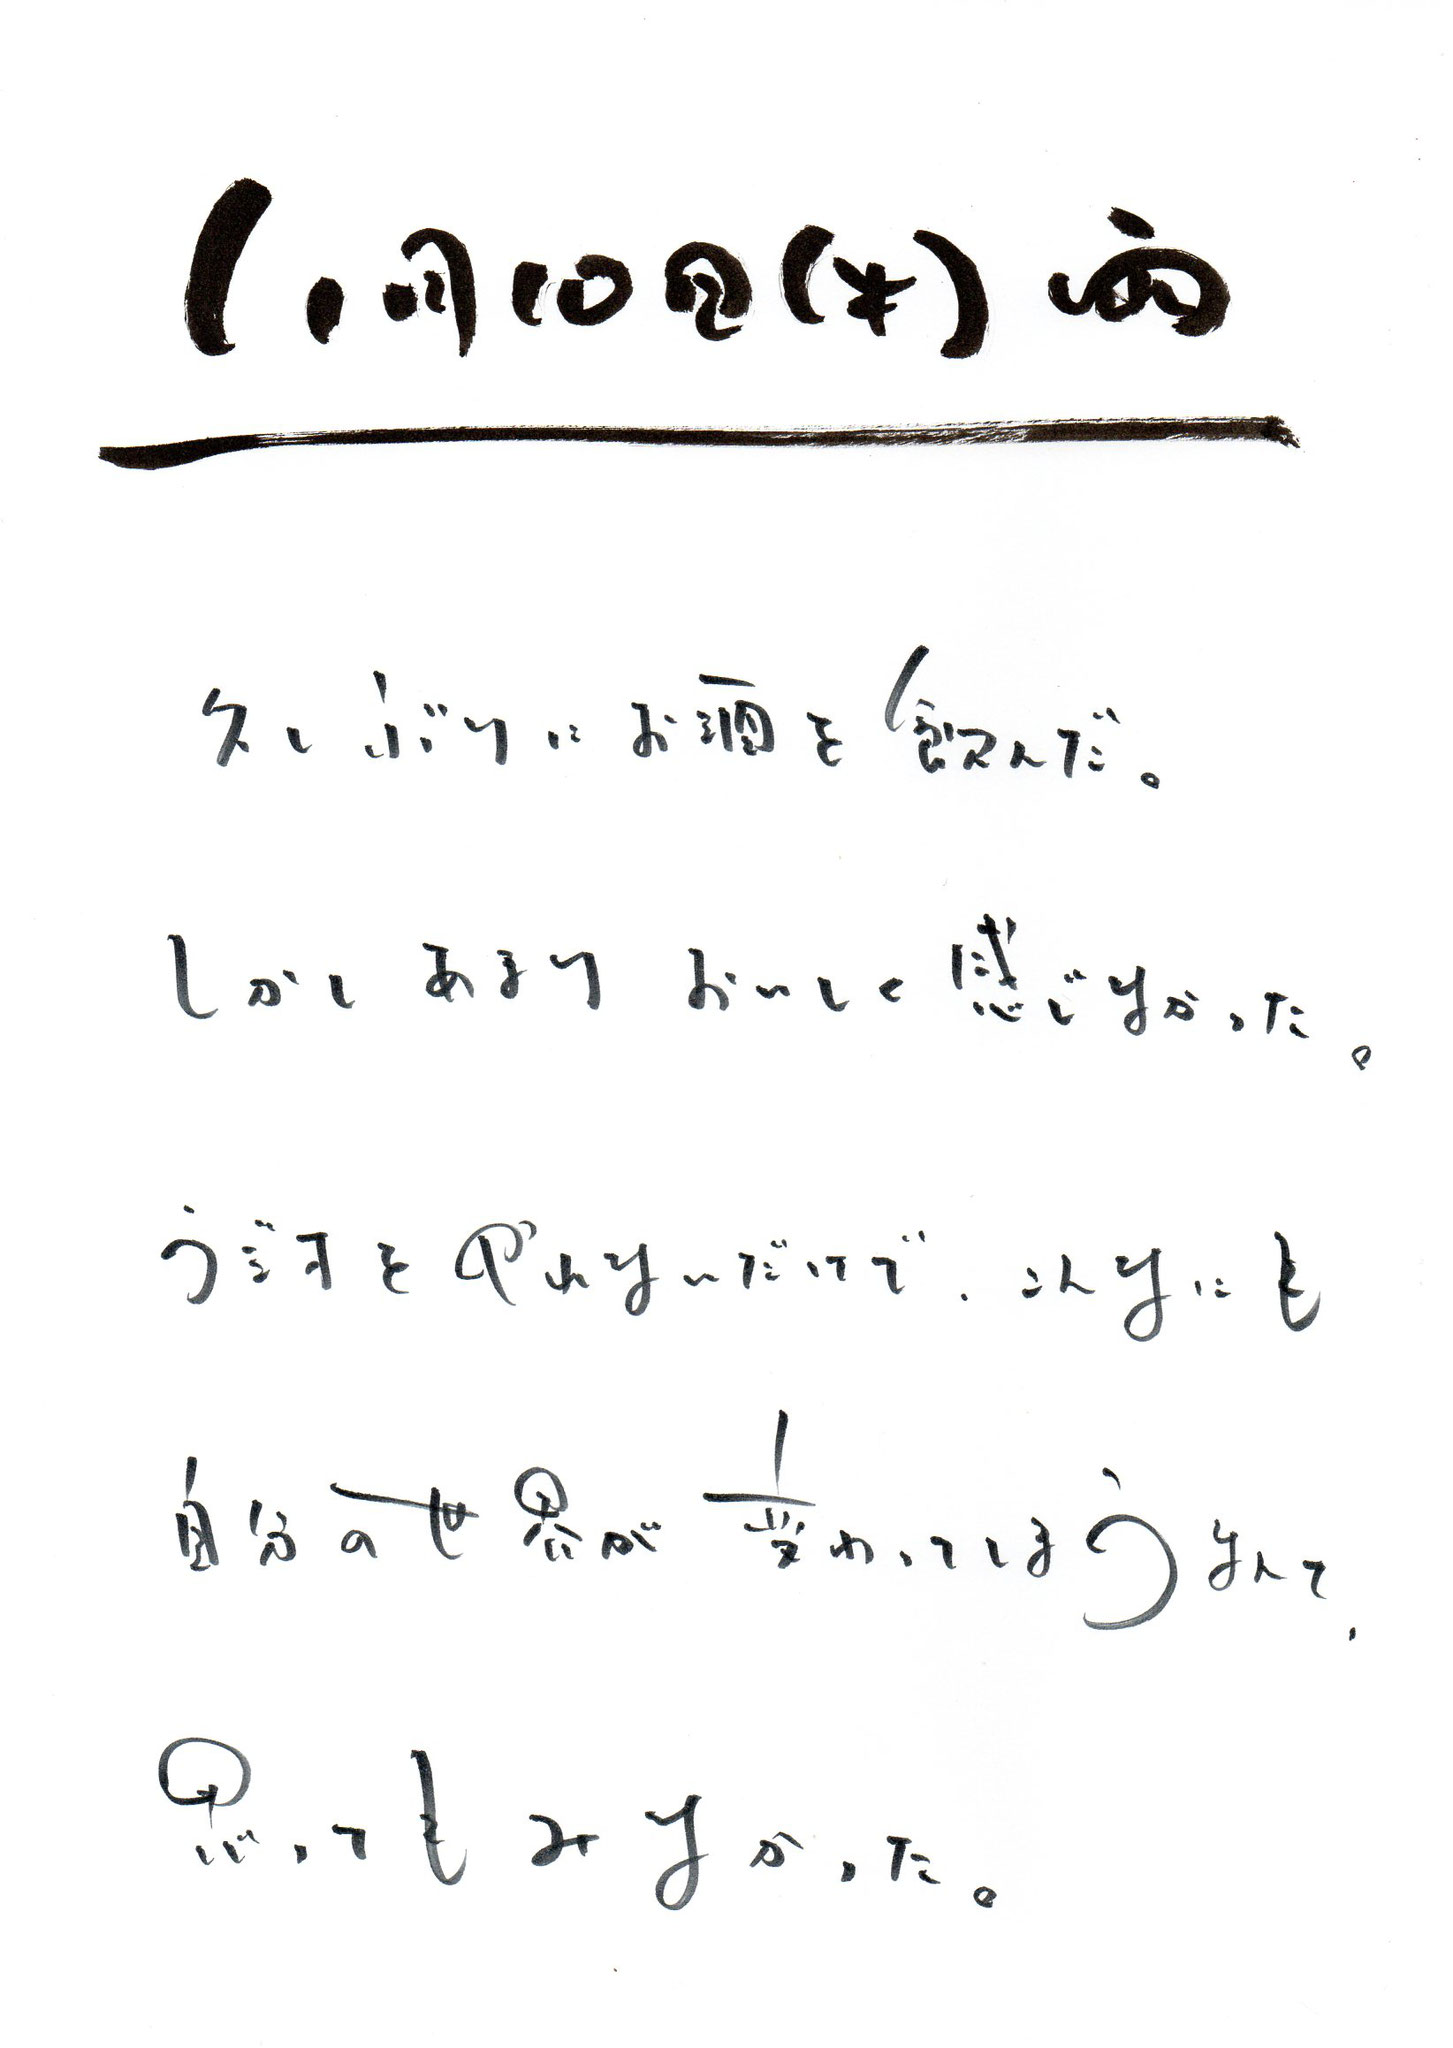 11月10日(木)
久しぶりにお酒を飲んだ。
しかしあまりおいしく感じなかった。
ラジオをやれないだけで、こんなにも
自分の世界が変わってしまうなんて、
思ってもみなかった。